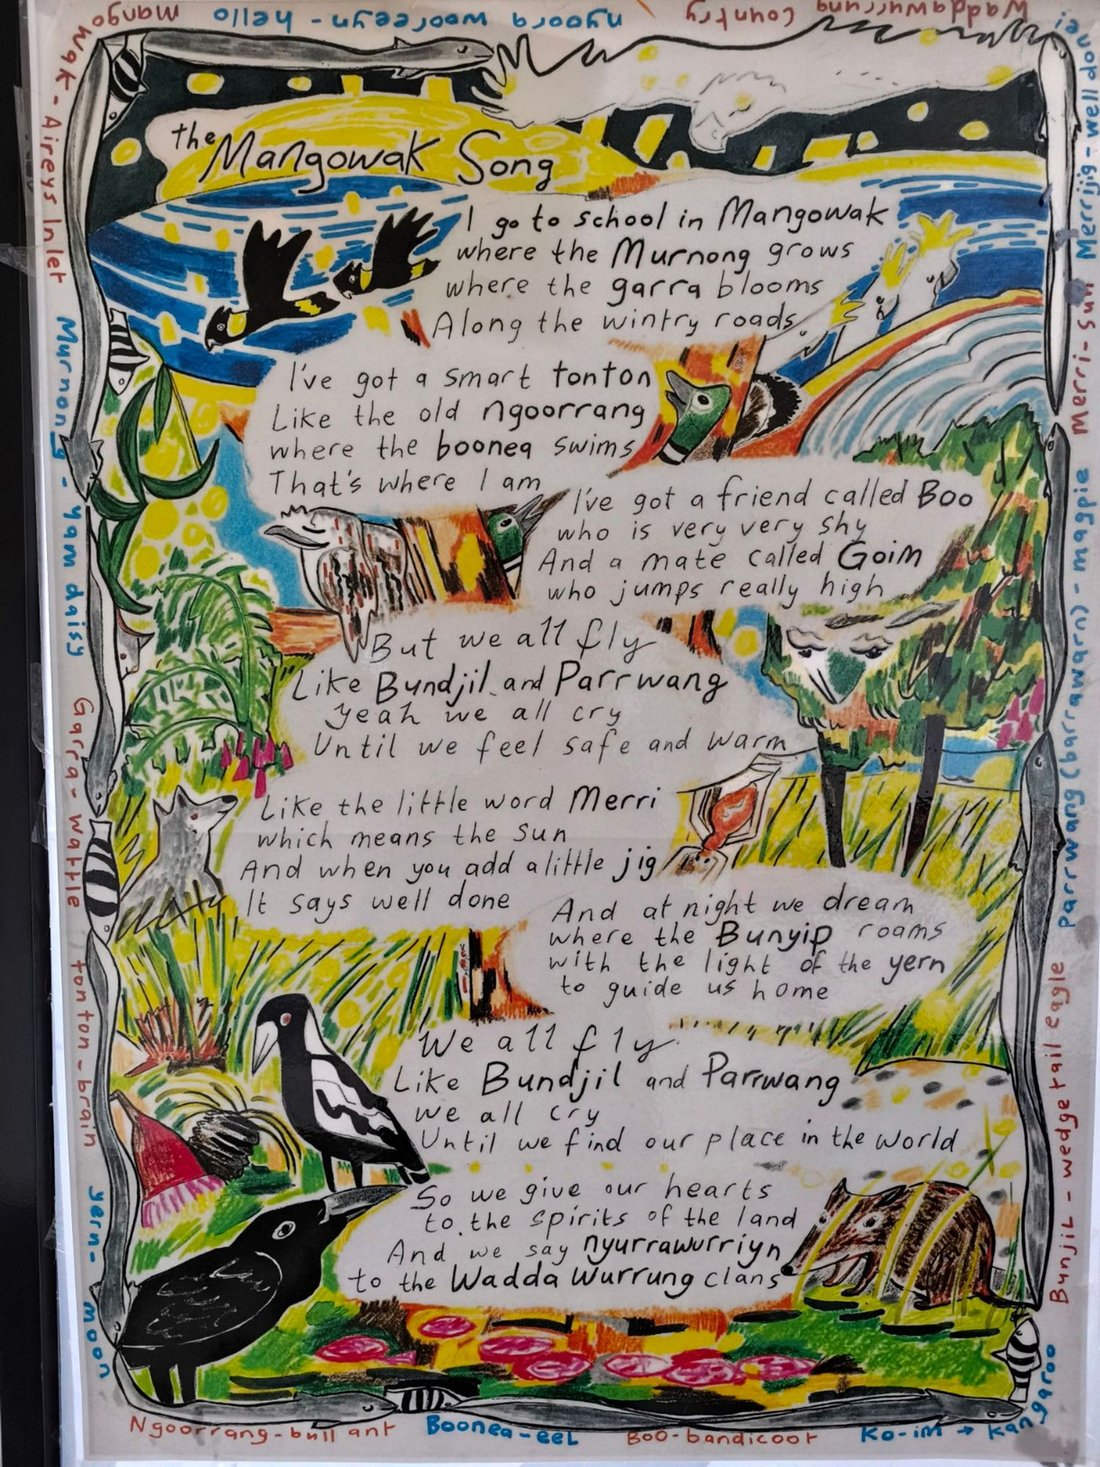 the Mangowak Song
I go to school in Mangowak
where the Murnong grows
where the garra blooms
Along the wintry roads.
I've got a smart tonton
Like the old ngoorrang
where the boonea swims
That's where I am
I've got a friend called Boo
who is very very shy
And a mate called Goim
who jumps really high
But we all fly
Like Bundjil and Parrwang
Yeah we all cry
Until we feel safe and warm
Like the little word Merri
which means the sun
And when you add a little jig
It says well done
And at night we dream
where the Bunyip roams
with the light of the yern
to guide us home
We all fly
Like Bundjil and Parrwang
we all cry
Until we find our place in the world
So we give our hearts
to the spirits of the land
And we say nyurrawurriyn
to the Wadda Wurrung clans
Mangowak - Aireys Inlet
Murnong - yam daisy
Garra - wattle
tonton - brain
yern - moon
Ngoorrang - bull ant
Boonea - eel
Boo - bandicoot
Ko-im → kangaroo
Bunjil - wedge tail eagle
Parrwang (barrawarn) - magpie
Merri - sun
Merrijig - well done!
Waddawurrung Country
nyoora wooreeyn - hello